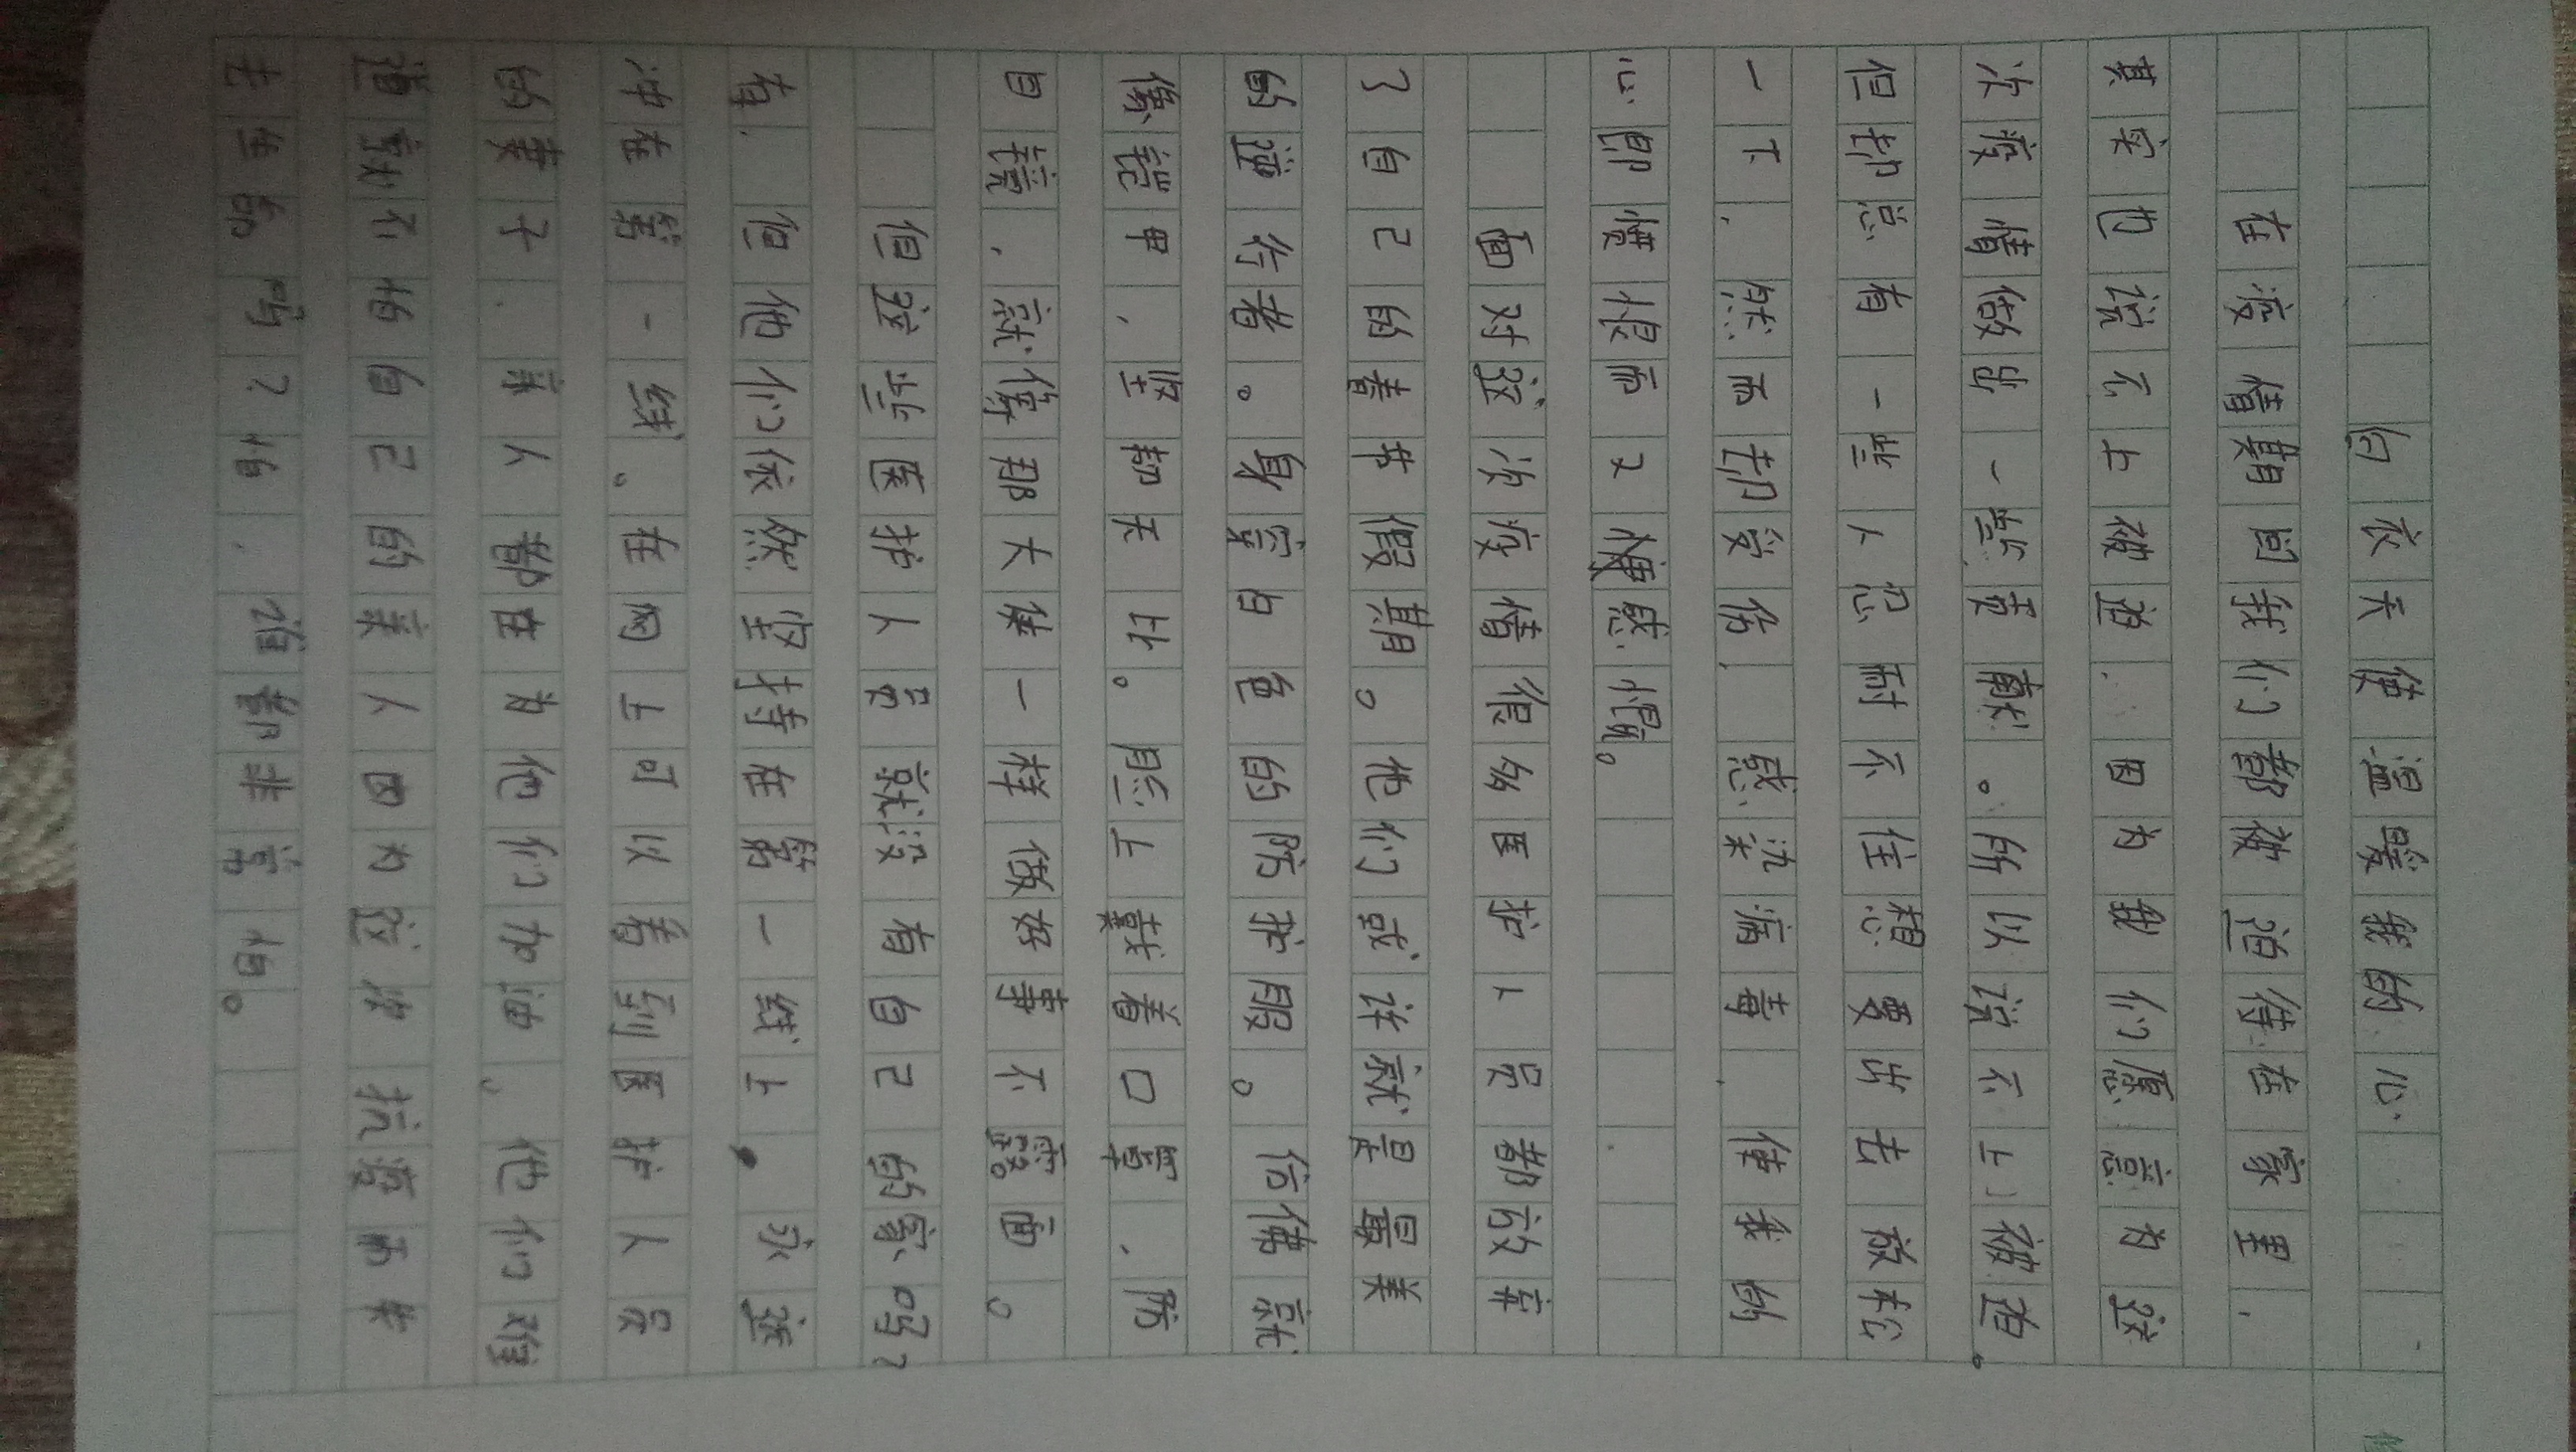 白衣天使温暖我的心
在疫情期间我们都被迫待在家里,
其实也说不上被迫,因为我们愿意为这
次疫情做出一点贡献。所以说不上被迫。
但却总有一些人忍耐不住想要出去放松
一下,殊不知却受伤,感染病毒,使我的
心即愤恨而又感慨。
面对这次疫情很多医护人员都放弃
了自己的春节假期。他们或许就是最美
的逆行者。身穿白色的防护服。仿佛就
像盔甲,坚韧无比。脸上戴着口罩,防
目镜,就像那大侠一样做好事不露面。
但这些医护人员就没有自己的家吗?
有,但他们依然坚持在第一线上,永远
冲在第一线。在网上可以看到医护人员
的妻子,亲人都在为他们加油。他们难
道就不怕自己的亲人因为这次抗疫而失
去生命吗?怕,谁都非常怕。